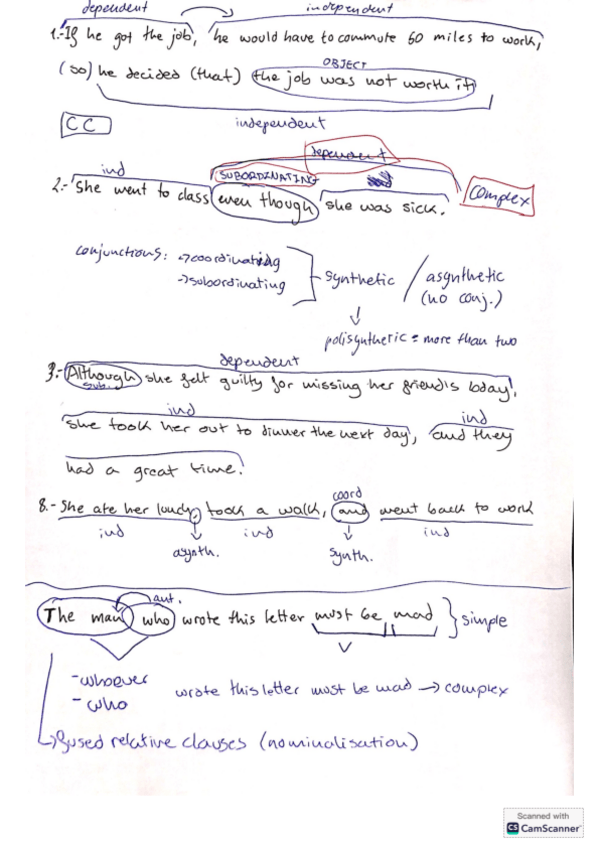 dependent independent
1.- If he got the job, he would have to commute 60 miles to work,
OBJECT
(so) he decided (that) the job was not worth it
CC independent
dependent
ind SUBORDINATING
2.- She went to class even though she was sick. Complex
conjunctions: → coordinating
→ subordinating
synthetic / asynthetic
(no conj.)
polisynthetic = more than two
dependent
3.- Although she felt guilty for missing her friend's bday,
sub.
ind ind
she took her out to dinner the next day, and they
had a great time.
coord
8.- She ate her lunch, took a walk, and went back to work
ind ind ind
asynth. synth.
ant.
The man who wrote this letter must be mad } simple
V
- whoever
- who
wrote this letter must be mad → complex
→ fused relative clauses (nominalisation)
Scanned with
CS CamScanner